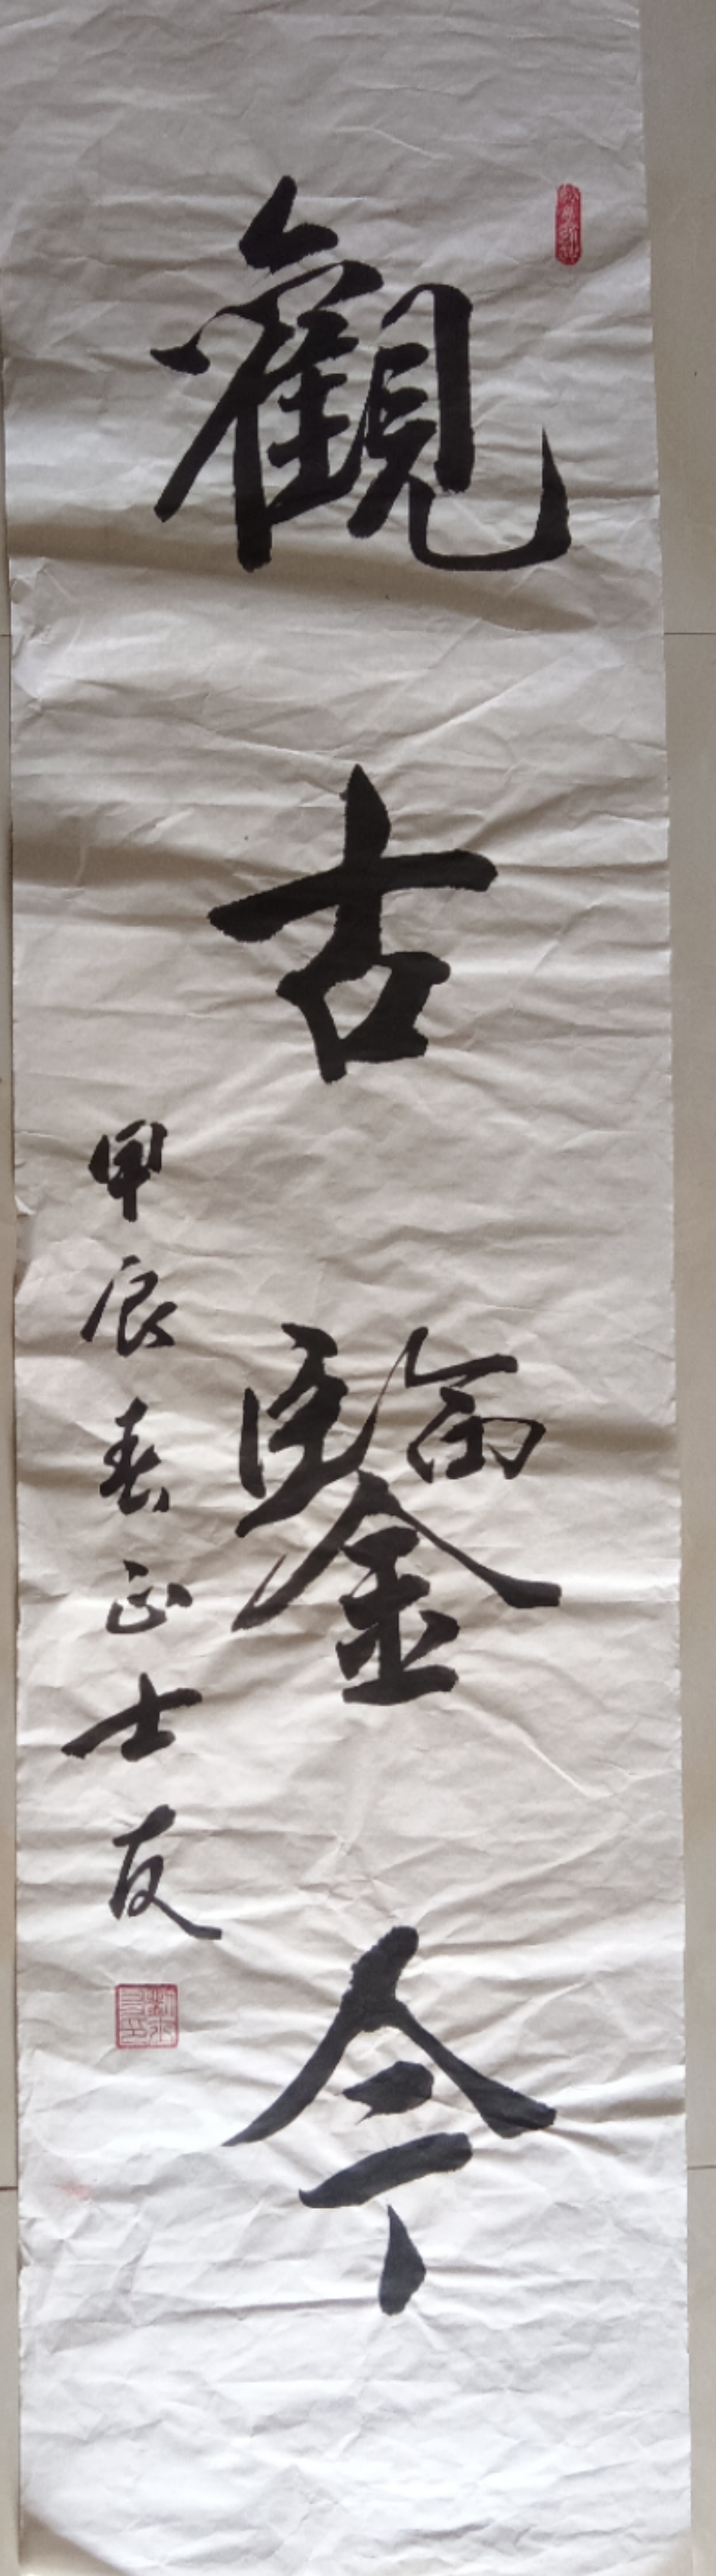 觀古鑒今
甲辰春正士友